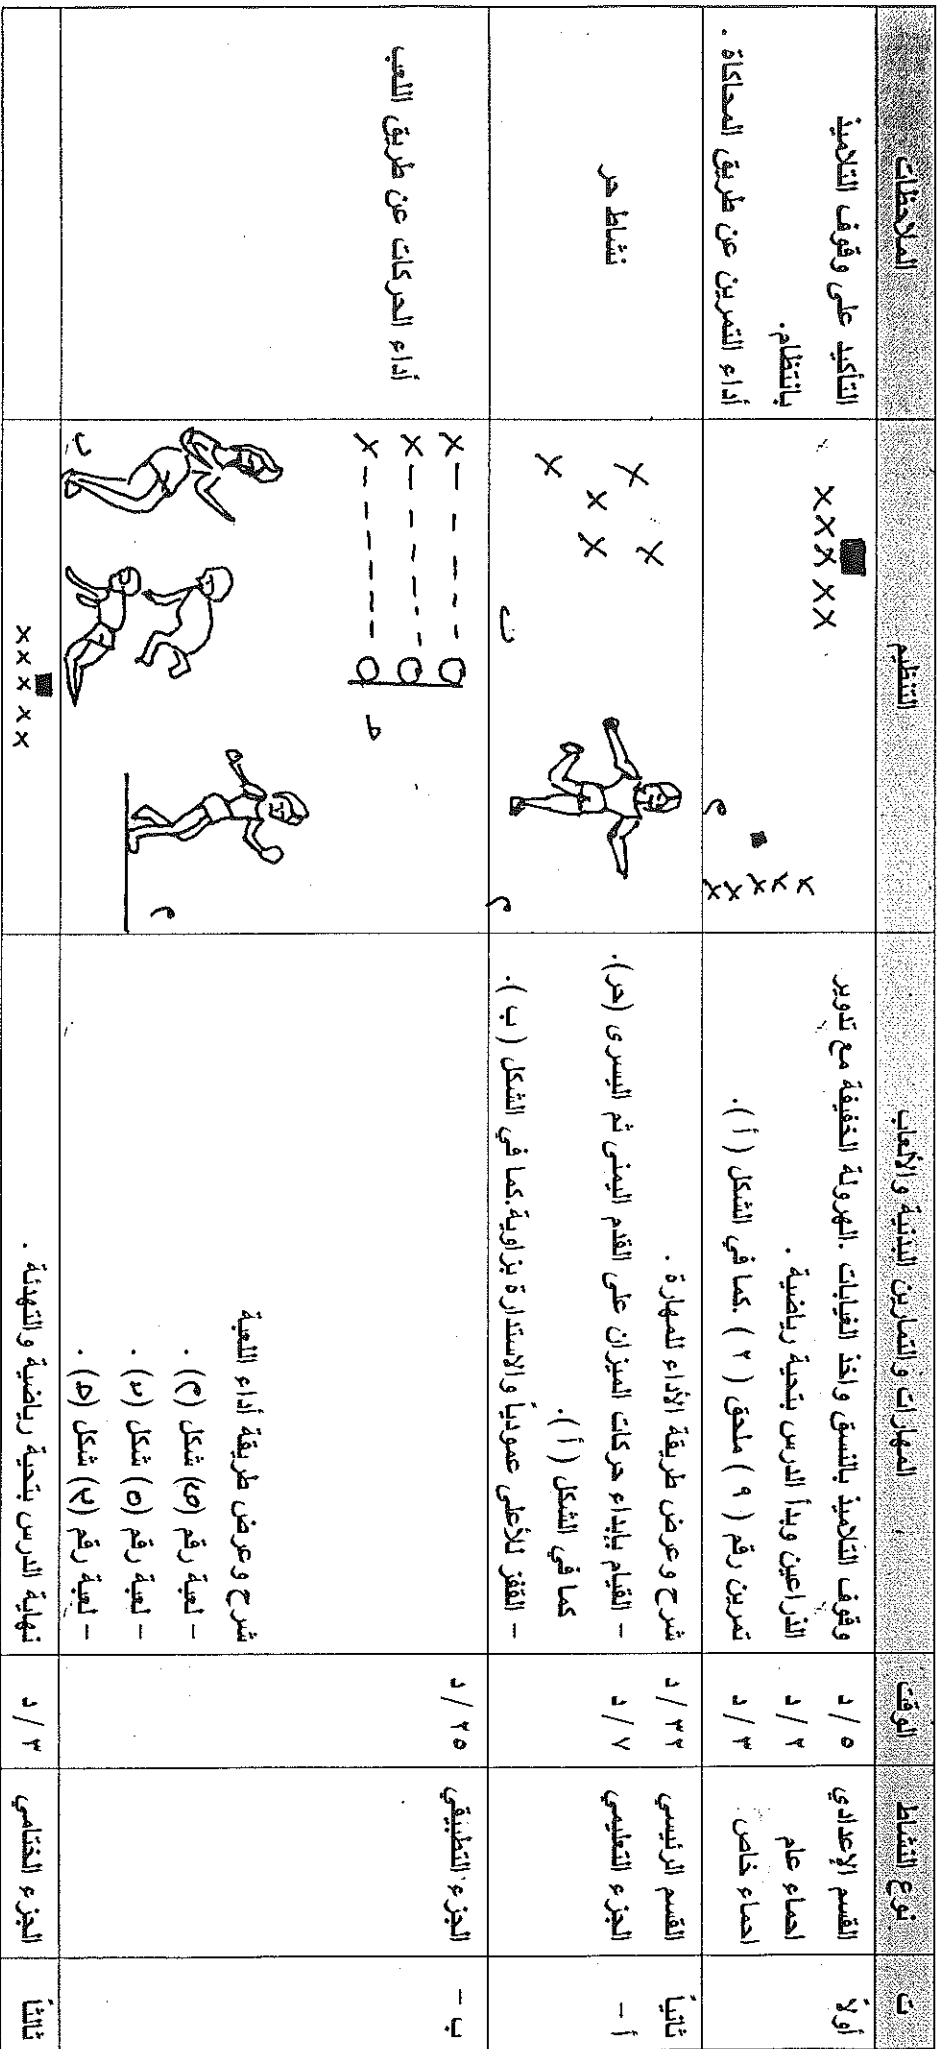 ت نوع النشاط الوقت المهارات والتمارين البدنية والألعاب التنظيم الملاحظات
أولاً القسم الإعدادي ٥ / د وقوف التلاميذ بالنسق واخذ الغيابات .الهرولة الخفيفة مع تدوير التأكيد على وقوف التلاميذ
احماء عام ٢ / د الذراعين وبدأ الدرس بتحية رياضية . بانتظام.
احماء خاص ٣ / د تمرين رقم ( ٩ ) ملحق ( ٢ ) .كما في الشكل ( أ ). أداء التمرين عن طريق المحاكاة .
××× ××
××× ××
م
ثانياً القسم الرئيسي ٣٢ / د شرح وعرض طريقة الأداء للمهارة .
أ – الجزء التعليمي ٧ / د – القيام بإبداء حركات الميزان على القدم اليمنى ثم اليسرى (حر). نشاط حر
كما في الشكل ( أ ).
– القفز للأعلى عمودياً والاستدارة بزاوية.كما في الشكل ( ب ).
× × × × ×
ب
م
ب – الجزء التطبيقي ٢٥ / د أداء الحركات عن طريق اللعب
شرح وعرض طريقة أداء اللعبة
– لعبة رقم شكل (م) .
– لعبة رقم (٥) شكل .
– لعبة رقم شكل .
×
×
×
م
ثالثاً الجزء الختامي ٣ / د نهاية الدرس بتحية رياضية والتهدئة .
××× ××